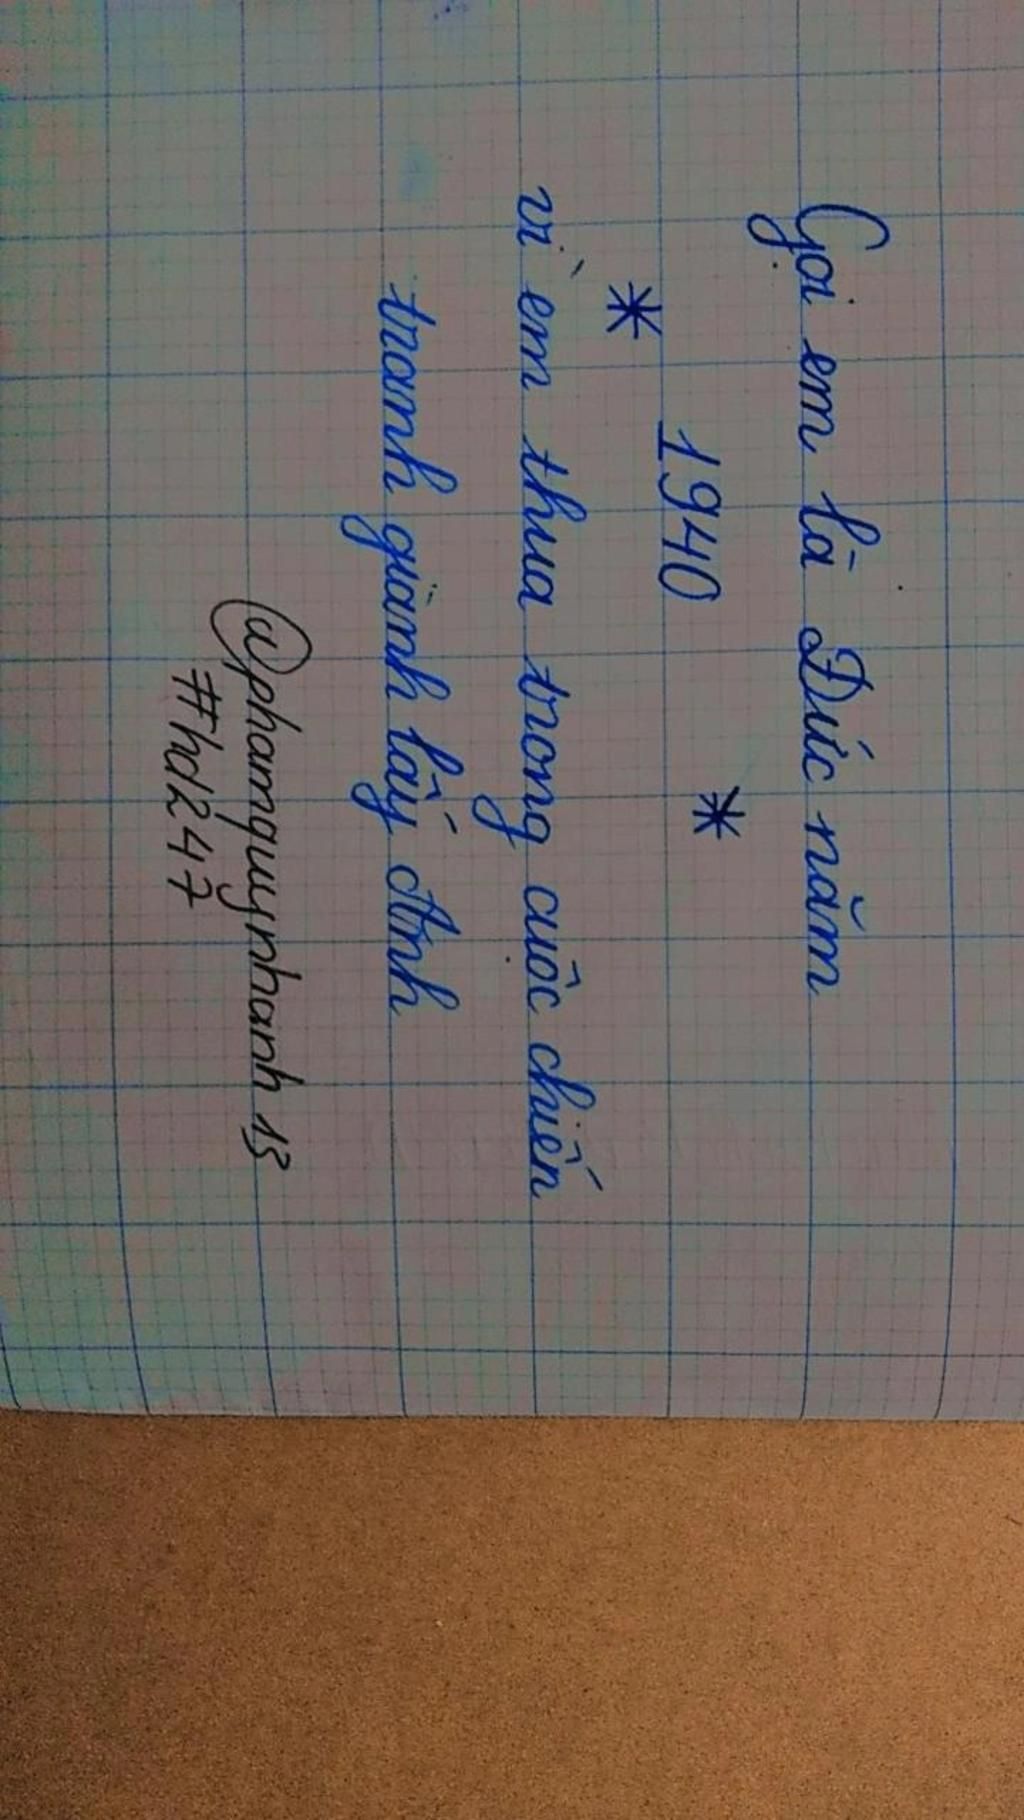 Gọi em là Đức năm
* 1940 *
vì em thua trong cuộc chiến
tranh giành lấy Anh
@phamquynhanh 13
#hd247